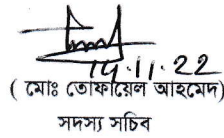 14.11.22
( মোঃ তোফায়েল আহমেদ)
সদস্য সচিব